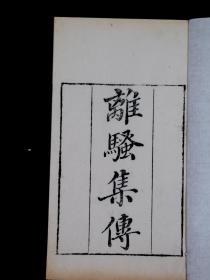 離騷集傳